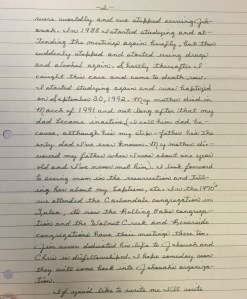 -2-
were worldly and we stopped serving Je-
hovah. In 1988 I started studying and at-
tending the meetings again briefly, but then
suddenly stopped and started using drugs
and alcohol again. Shortly thereafter I
caught this case and came to death row.
I started studying again and was baptized
on September 30, 1992. My mother died in
March of 1991 and not long after that my
dad became inactive, (I call him dad be-
cause, although he's my step-father he's the
only dad I've ever known. My mother di-
vorced my father when I was about one year
old and I've never met him). I look forward
to seeing mom in the resurrection and tell-
ing her about my baptism, etc. In the 1970s
we attended the Carbondale congregation in
Tulsa,
it's now the Rolling Oaks congrega-
tion and the Walnut Creek and Riverside
congregations have their meetings there too.
Jim never dedicated his life to Jehovah and
Chris is disfellowshipped. I hope someday soon
they will come back into Jehovah's organiza-
tion.
If you'd like to write me I will write